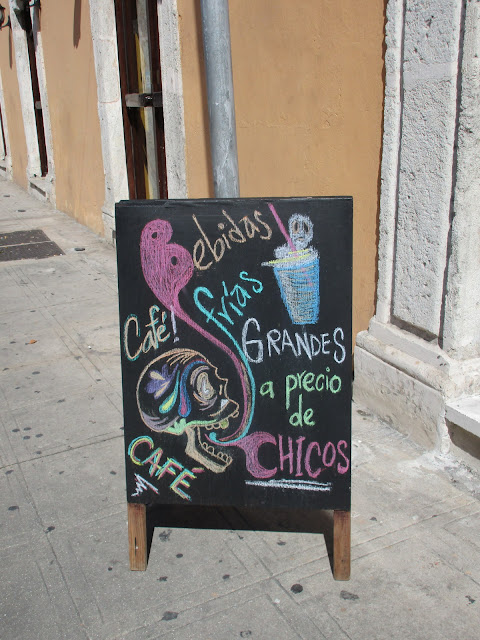 Bebidas
frías
Café!
GRANDES
a precio
de
CHICOS
CAFÉ